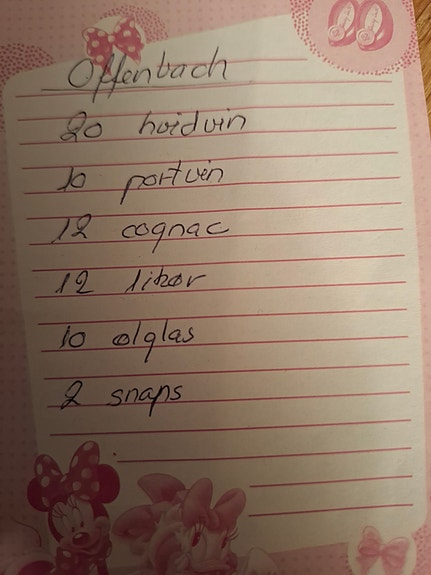 Offenbach
20 hvidvin
10 portvin
12 cognac
12 likør
10 ølglas
2 snaps